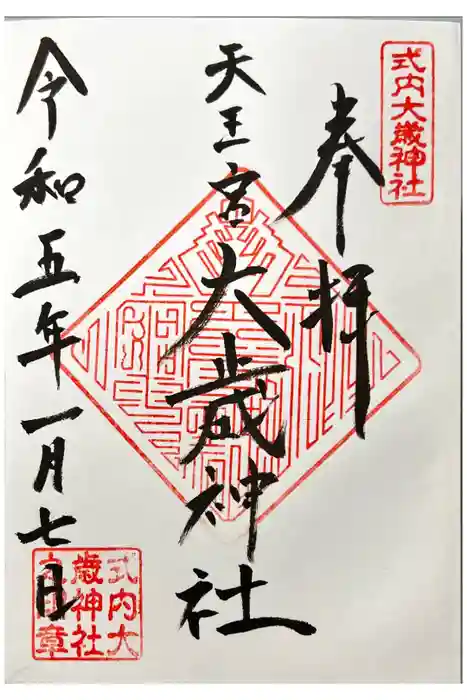 式内大歳神社
奉拝
天王宮大歳神社
令和五年一月七日
式内大
歳神社
之印章